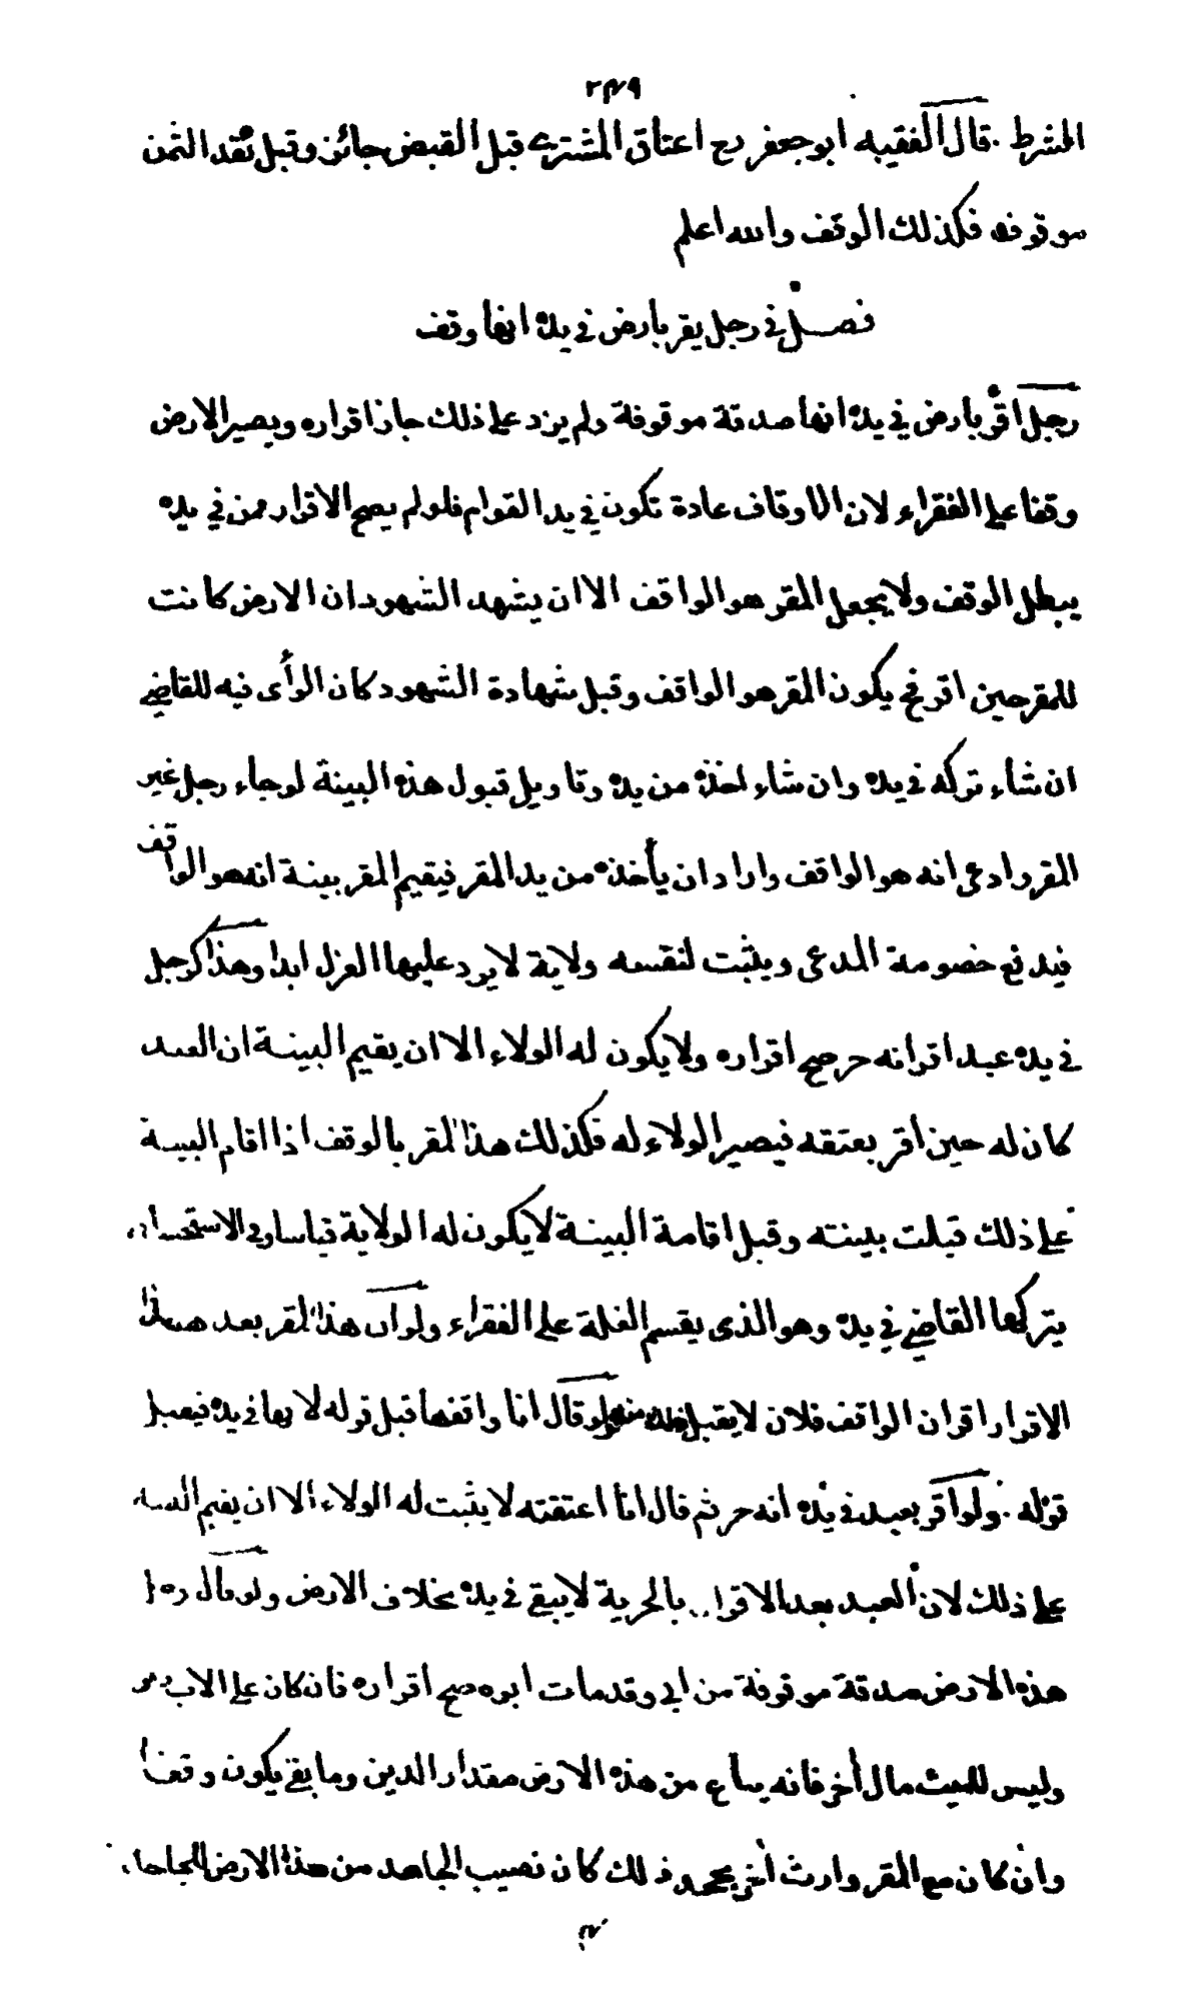 ٢٤٩
الشرط . قال الفقيه ابو جعفر رح اعتاق المشترى قبل القبض جائز وقبل نقد الثمن
موقوفه فكذلك الوقف والله اعلم
فصل فى رجل يقر بارض فى يده انها وقف
رجل اقر بارض فى يده انها صدقة موقوفة ولم يزد على ذلك جاز اقراره ويصير الارض
وقفا على الفقراء لان الاوقاف عادة تكون فى يد القوام فلو لم يصح الاقرار ممن فى يده
يبطل الوقف ولا يجعل المقر هو الواقف الا ان يشهد الشهود ان الارض كانت
للمقر حين اقر فح يكون المقر هو الواقف وقبل شهادة الشهود كان الرأى فيه للقاضى
ان شاء تركه فى يده وان شاء اخذه من يده وتاويل قبول هذه البينة لو جاء رجل غير
المقر وادعى انه هو الواقف واراد ان يأخذه من يد المقر فيقيم المقر بينة انه هو الواقف
فيدفع خضومة المدعى ويثبت لنفسه ولاية لا يرد عليها العزل ابدا وهذا كرجل
فى يده عبد اقر انه حر صح اقراره ولا يكون له الولاء الا ان يقيم البينة ان العبد
كان له حين اقر بعتقه فيصير الولاء له فكذلك هذا المقر بالوقف اذا اقام البينة
على ذلك قبلت بينته وقبل اقامة البينة لا يكون له الولاية قياسا وفى الاستحسان
يتركها القاضى فى يده وهو الذى يقسم الغلة على الفقراء ولو ان هذا المقر بعد هذا
الاقرار اقر ان الواقف فلان لا يقبل منه ولو قال انا واقفها قبل قوله لانها فى يده فيقبل
قوله . ولو اقر بعبد فى يده انه حر ثم قال انا اعتقته لا يثبت له الولاء الا ان يقيم البينة
على ذلك لان العبد بعد الاقرار بالحرية لا يبقى فى يده بخلاف الارض ولو قال رجل
هذه الارض صدقة موقوفة من ابى وقد مات ابوه صح اقراره فان كان على الاب دين
وليس للميت مال أخر فانه يباع من هذه الارض مقدار الدين وما بقى يكون وقفا
وان كان مع المقر وارث أخر يجحد ذلك كان نصيب الجاحد من هذه الارض للجاحد